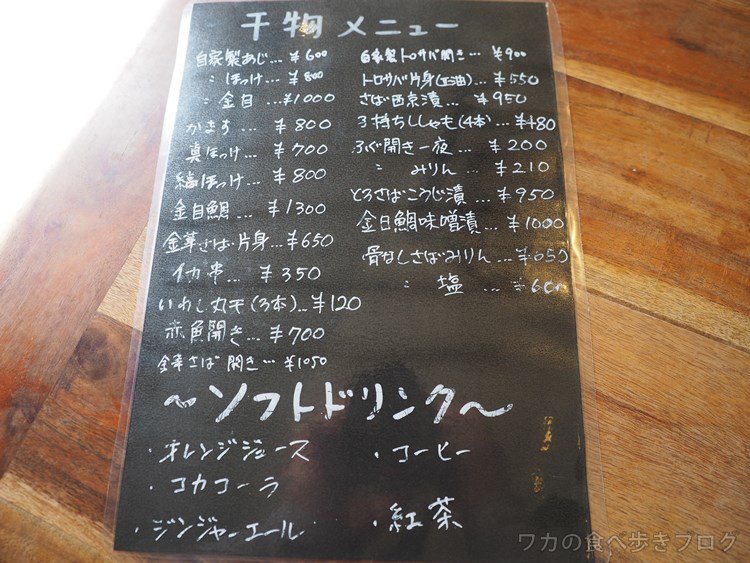 干物メニュー
自家製あじ… ¥600
〃 ほっけ… ¥800
〃 金目…¥1000
かます… ¥800
真ほっけ… ¥700
縞ほっけ… ¥800
金目鯛… ¥1300
金華さば・片身…¥650
イカ串… ¥350
いわし丸干(3本)…¥120
赤魚開き…¥700
金華さば開き…¥1050
自家製トロサバ開き… ¥900
トロサバ片身(正油)…¥550
さば西京漬… ¥950
子持ちししゃも(4本)…¥480
ふぐ開き一夜… ¥200
〃 みりん… ¥210
とろさばこうじ漬…¥950
金目鯛味噌漬…¥1000
骨なしさばみりん…¥650
〃 塩 …
〜ソフトドリンク〜
・オレンジジュース
・コカコーラ
・ジンジャーエール
・コーヒー
・紅茶
ワカの食べ歩きブログ